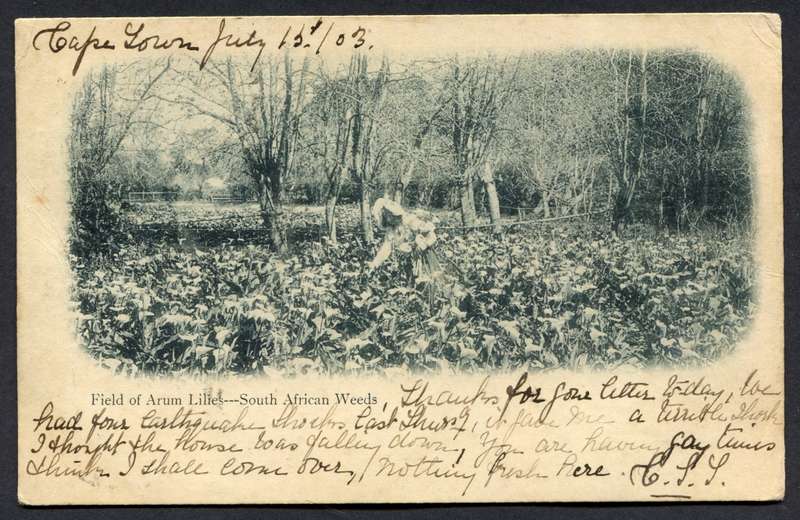 Cape Town July 1st/03.
Field of Arum Lilies---South African Weeds, Thanks for yore letter to-day, We
had four Earthquake Shocks last Thursd, it gave me a terrible Shock
I thorght the house was falling down, You are having gay times
think I shall come over, Nothing fresh here. C.S.S.